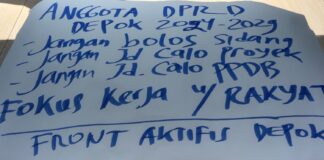 ANGGOTA DPRD
DEPOK 2024-2029
- Jangan bolos sidang
- Jangan Jd Calo Proyek
- Jangan Jd. Calo PPDB
FOKUS Kerja u/ RAKYAT
FRONT AKTIFIS DEPOK